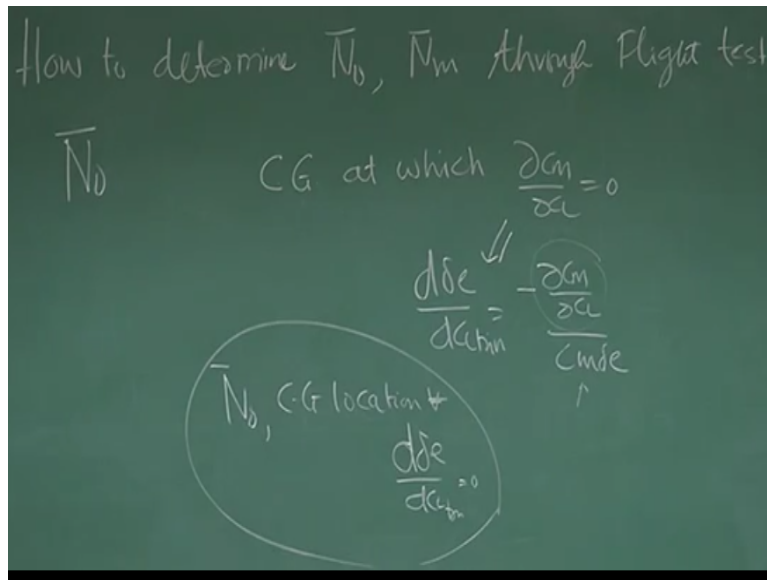 How to determine N̄₀, N̄m through Flight test
N̄₀ CG at which ∂Cm/∂CL = 0
⇓
dδe/dCLtrim = - (∂Cm/∂CL)/Cmδe
↑
N̄₀, C.G location
dδe/dCLtrim = 0